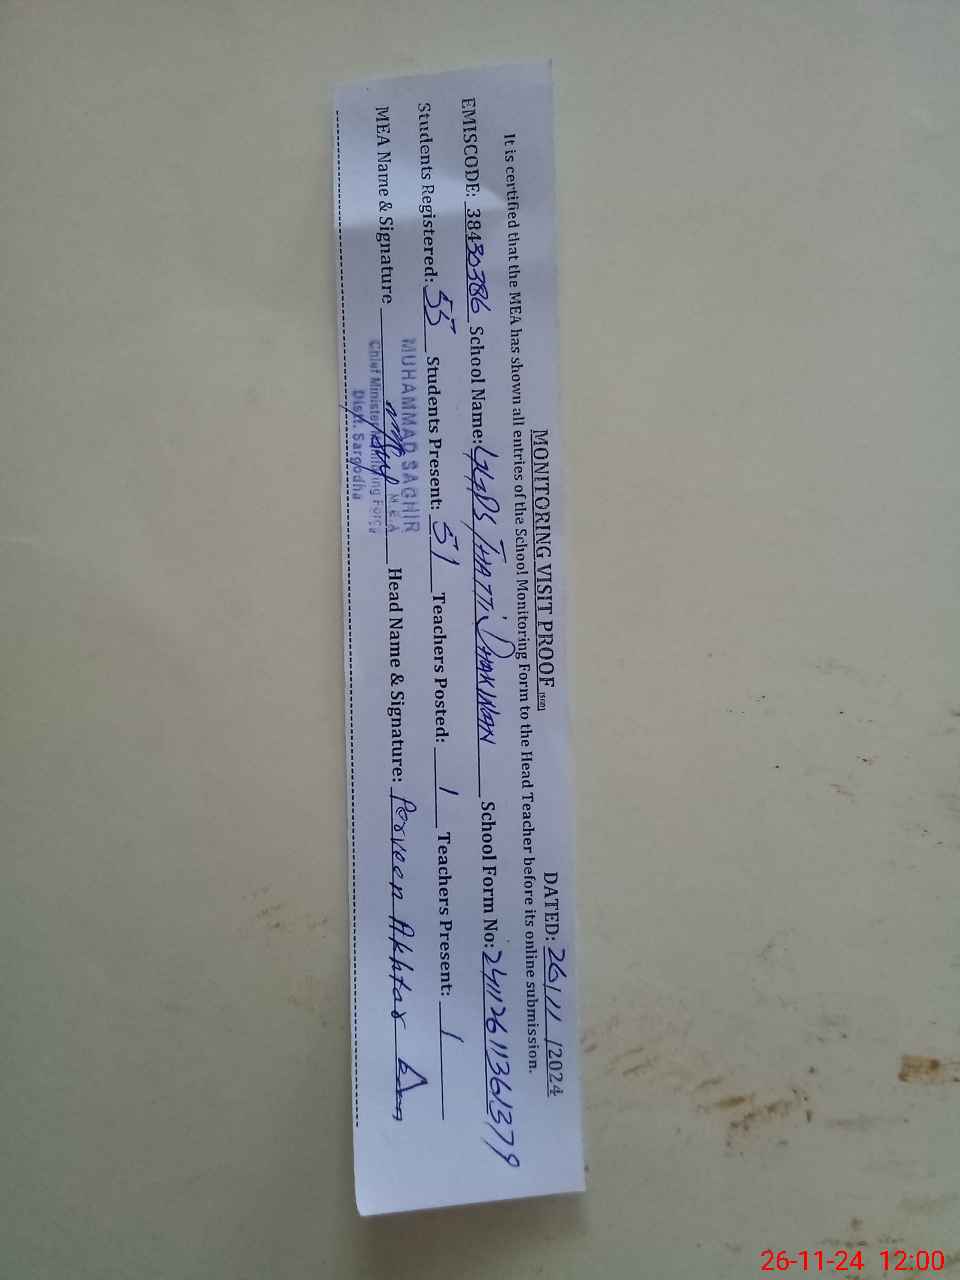 MONITORING VISIT PROOF DATED: 26/11/2024
It is certified that the MEA has shown all entries of the School Monitoring Form to the Head Teacher before its online submission.
EMISCODE: 38430386 School Name: GGPS THATTI School Form No: 24112611361379
Students Registered: 55 Students Present: 51 Teachers Posted: 1 Teachers Present: 1
MEA Name & Signature Head Name & Signature: Perveen Akhtar
MUHAMMAD SAGHIR
M.E.A
Chief Minister Monitoring Force
Distt. Sargodha
26-11-24 12:00